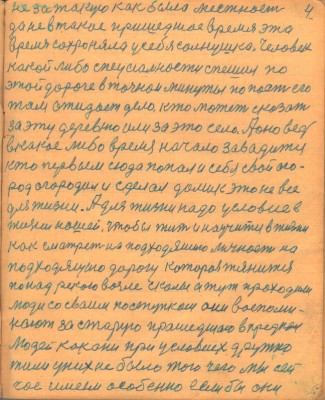 4
не за такую как была местност
да не в такое пришедшое время эта
время сохроняла у себя солнушка. Человек
какой либо специалности спешил по
этой дороге в точной минуты попост его
там, ожидает дело, кто может сказат
за эту деревню или за это село. А оно вед
в какое либо время начало завадится
кто первым сюда попал и себя свой ого-
род огородил и сделал домик это не все
для жизни. А для жизни надо условие в
жизни нашей. чтобы жит и научится в жизни
как смотрет на подходяшию личност на
подходяшую дорогу которая тянится
понад рекою возле скалы и тут проходили
люди со своим поступком они воспоми-
нают за старую прашедшаю в предков
людей как они при условиех дружно
жили у них не было того чего мы сей
час имеем особенно если бы они